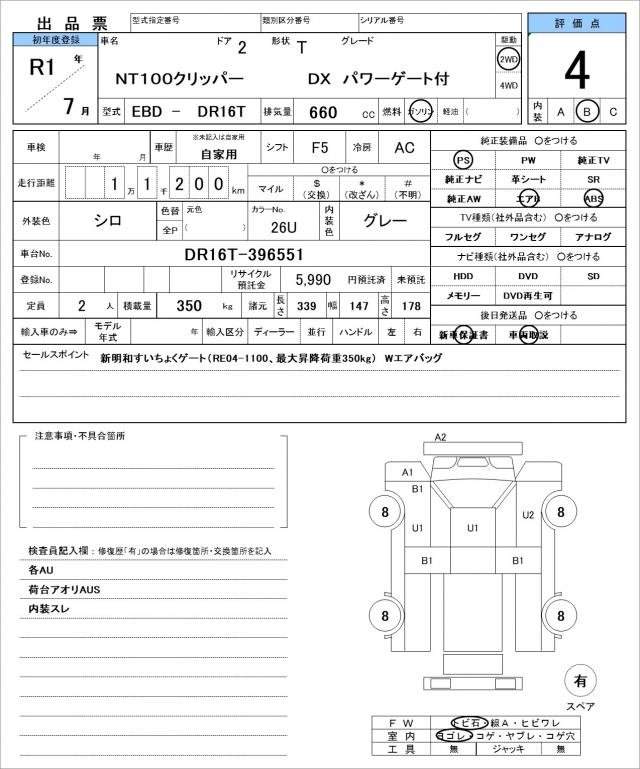 出品票 型式指定番号 類別区分番号 シリアル番号
評価点
4
内装 A B C
初年度登録
R1 年
7 月
車名 ドア 2 形状 T グレード 駆動
NT100クリッパー DX パワーゲート付
2WD
4WD
型式 EBD － DR16T 排気量 660 CC 燃料 ガソリン 軽油 ( )
車検 年 月 車歴 ※未記入は自家用 自家用 シフト F5 冷房 AC
走行距離 1 万 1 千 2 0 0 km
○をつける
マイル $ (交換) * (改ざん) # (不明)
外装色 シロ 色替 全P 元色 ( ) カラーNo. 26U 内装色 グレー
車台No. DR16T-396551
登録No. リサイクル預託金 5,990 円預託済 未預託
定員 2 人 積載量 350 kg 諸元 長さ 339 幅 147 高さ 178
輸入車のみ⇒ モデル年式 年 輸入区分 ディーラー 並行 ハンドル 左 右
純正装備品 ○をつける
PS PW 純正TV
純正ナビ 革シート SR
純正AW エアB ABS
TV種類(社外品含む) ○をつける
フルセグ ワンセグ アナログ
ナビ種類(社外品含む) ○をつける
HDD DVD SD
メモリー DVD再生可
後日発送品 ○をつける
新車保証書 車両取説
セールスポイント 新明和すいちょくゲート(RE04-1100、最大昇降荷重350kg) Wエアバッグ
注意事項・不具合箇所
検査員記入欄：修復歴「有」の場合は修復箇所・交換箇所を記入
各AU
荷台アオリAUS
内装スレ
A2
A1
B1
8 8
U1 U1 U2
B1 B1
8 8
有
スペア
FW トビ石・線A・ヒビワレ
室内 ヨゴレ・コゲ・ヤブレ・コゲ穴
工具 無 ジャッキ 無